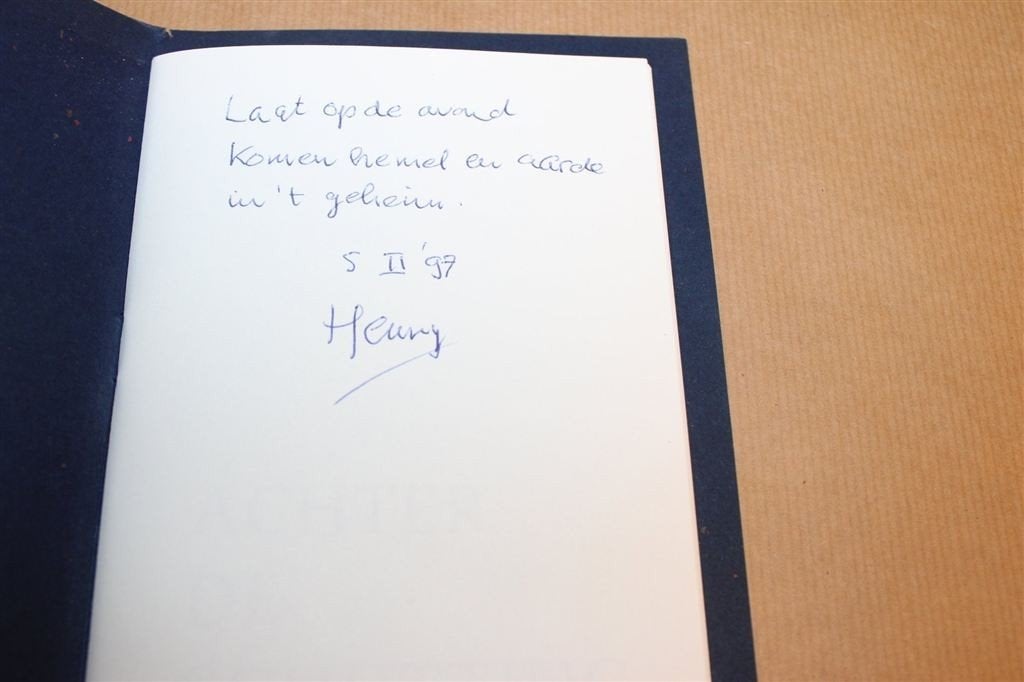 Laat op de avond
komen hemel en aarde
in 't geheim.
5 II '97
Henny
ACHTER
DE